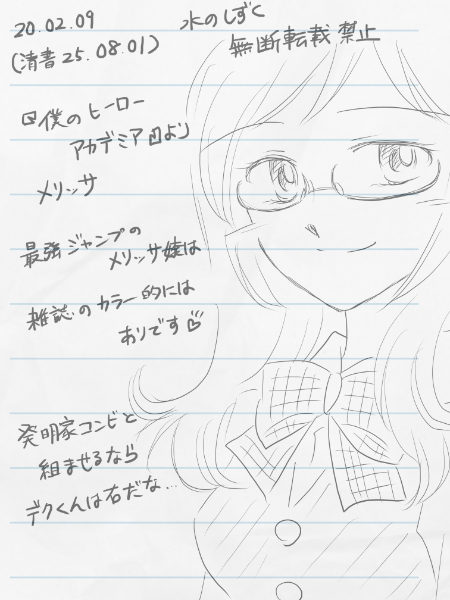 20.02.09
(清書25.08.01)
水のしずく
無断転載禁止
『僕のヒーロー
アカデミア』より
メリッサ
最強ジャンプの
メリッサ嬢は
雑誌のカラー的には
ありです♡
発明家コンビと
組ませるなら
デクくんは右だな…